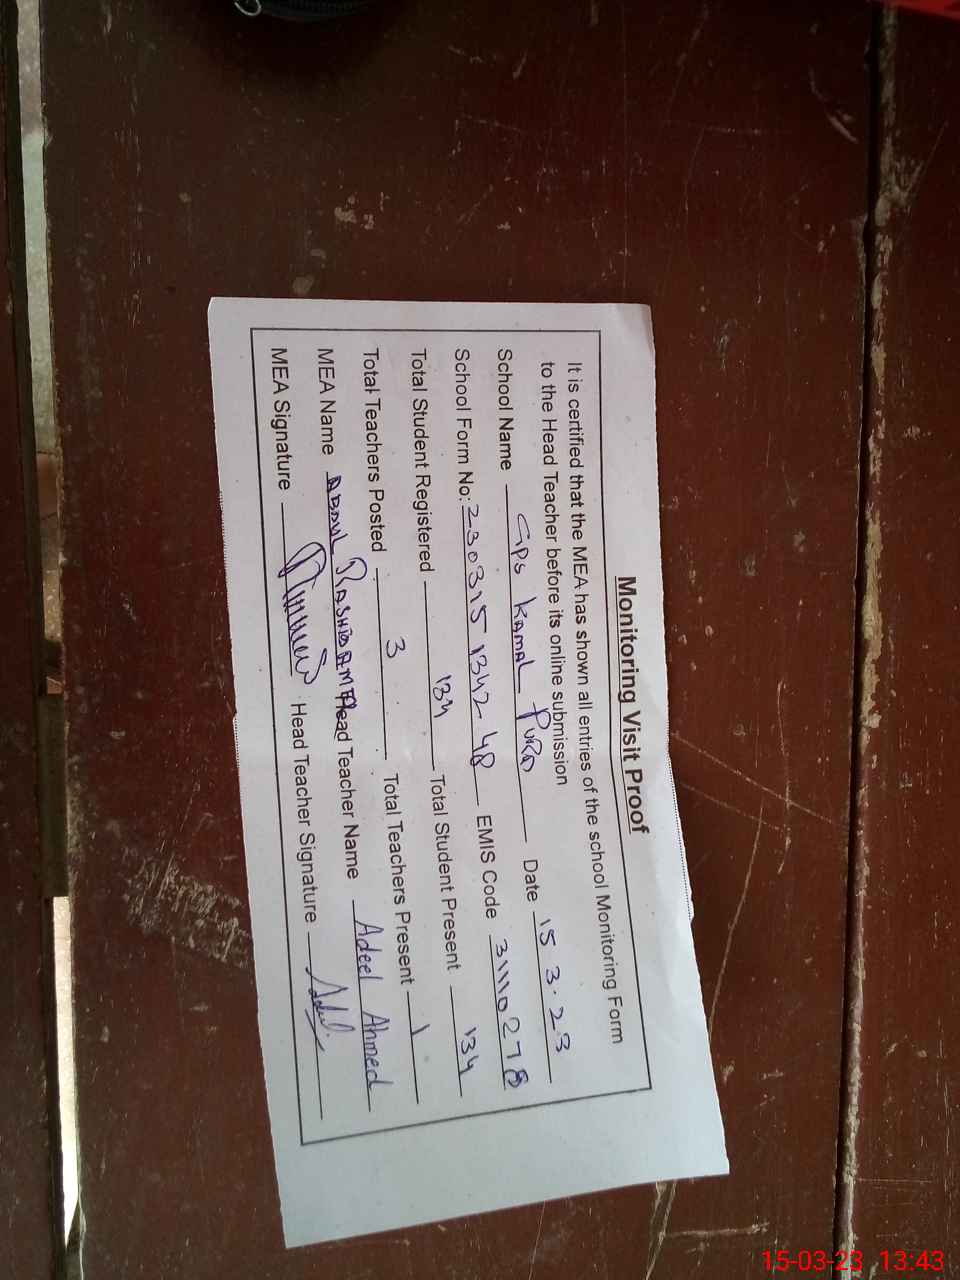 Monitoring Visit Proof
It is certified that the MEA has shown all entries of the school Monitoring Form
to the Head Teacher before its online submission
School Name GPS KAMAL PURA Date 15 3.23
School Form No: 230315 1342 48 EMIS Code 31110278
Total Student Registered 134 Total Student Present 134
Total Teachers Posted 3 Total Teachers Present 1
MEA Name ABDUL RASHID Head Teacher Name Adeel Ahmed
MEA Signature Head Teacher Signature Adeel
15-03-23 13:43